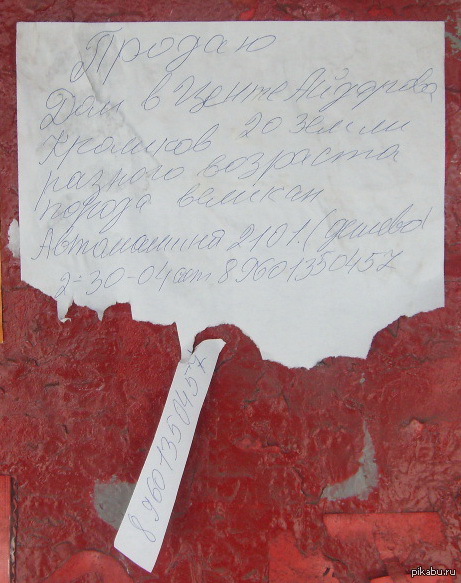 Продаю
Дом в Центе Айдарова
Кроликов 20 земли
разного возраста
порода великан
Автомашина 2101. (дешево)
2-30-04 сот. 89601350457
89601350457
pikabu.ru